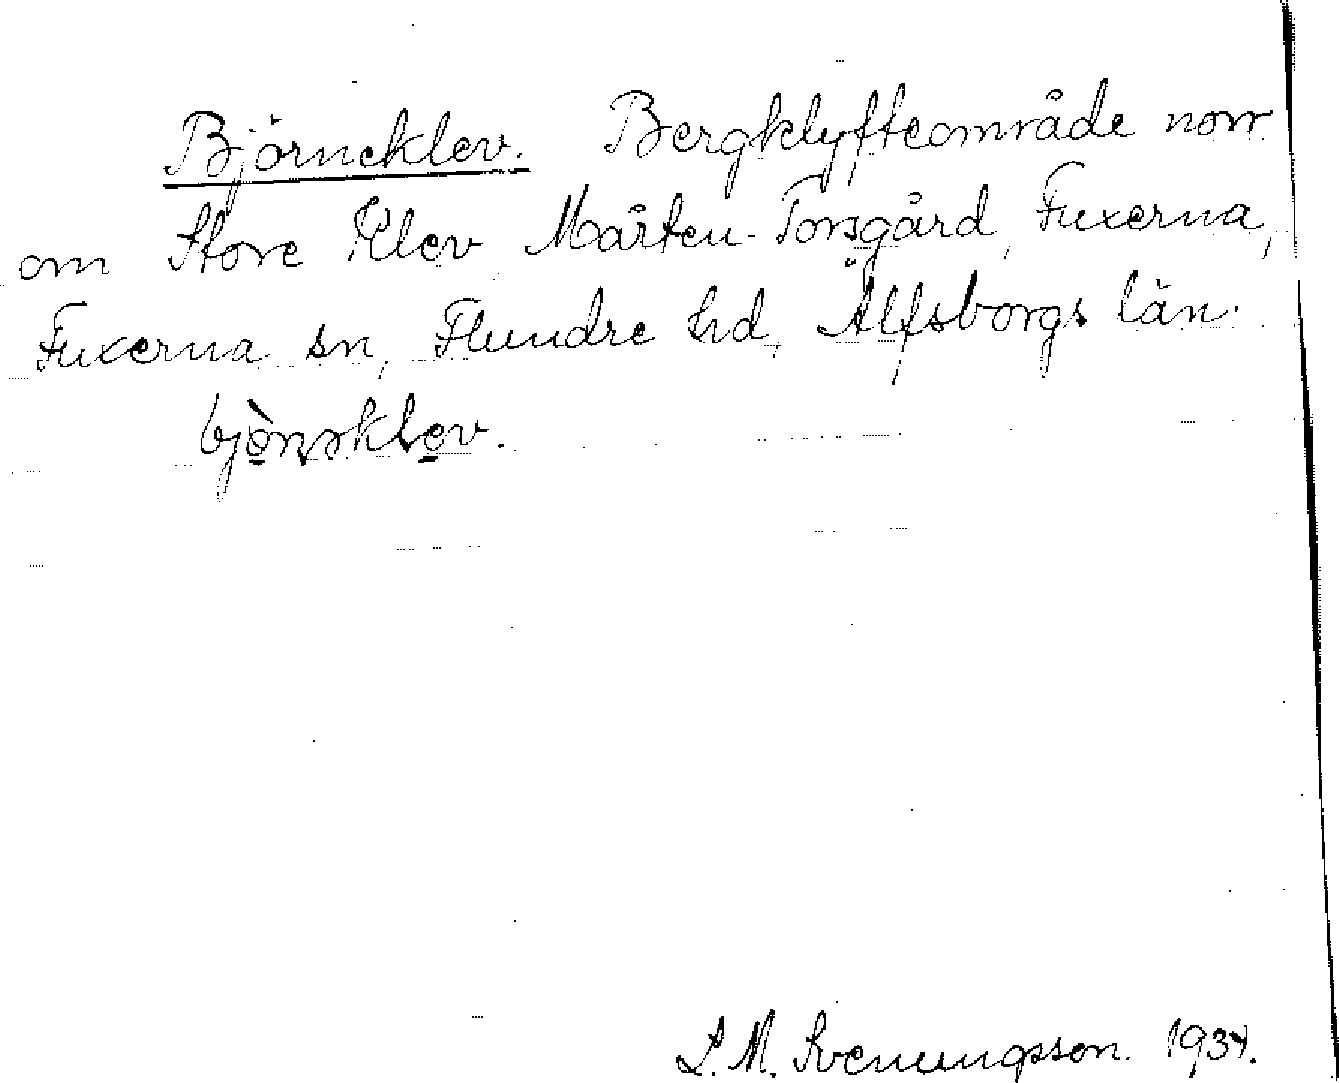 Björneklev. Bergklyfteområde norr
om Store Klev Mårten-Torsgård, Fuxerna,
Fuxerna sn, Flundre hd, Älfsborgs län.
bjènsklev.
L. M. Svenungsson. 1934.